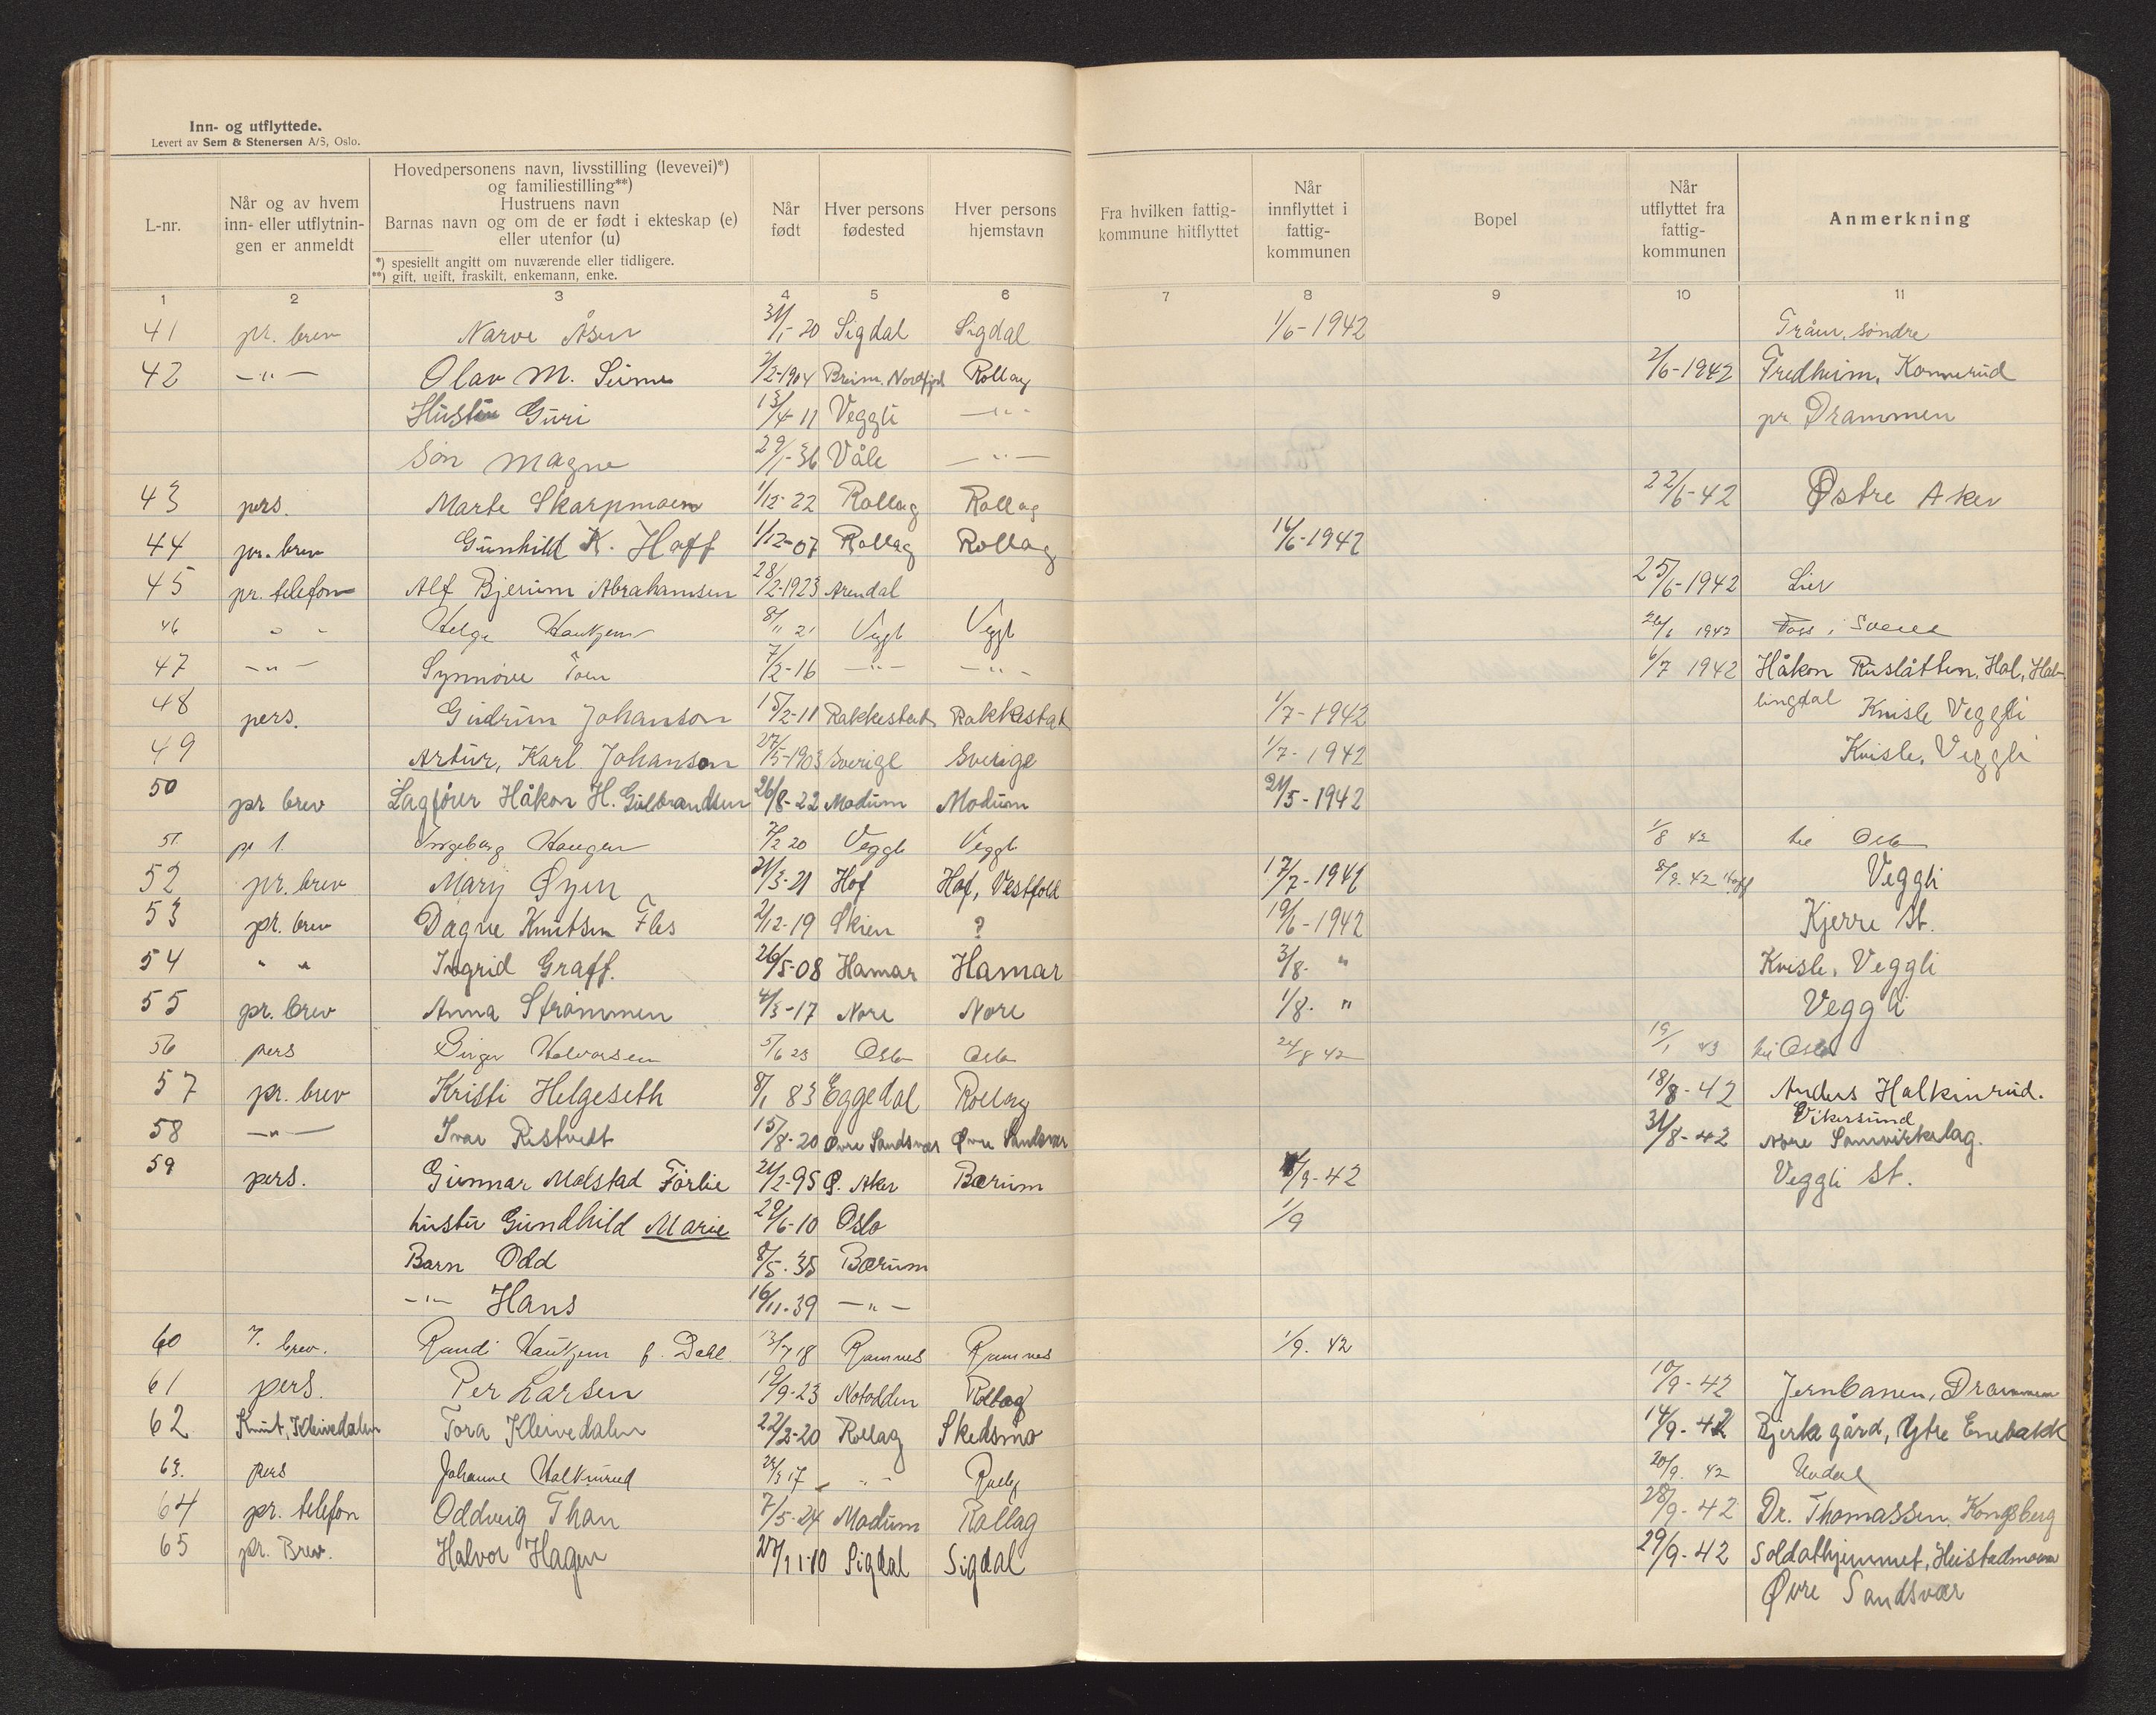 Inn- og utflyttede.
Levert av Sem & Stenersen A/S, Oslo.
L-nr.
Når og av hvem inn- eller utflytnin- gen er anmeldt
Hovedpersonens navn, livsstilling (levevei)*)
og familiestilling**)
Hustruens navn
Barnas navn og om de er født i ekteskap (e)
eller utenfor (u)
*) spesiellt angitt om nuværende eller tidligere.
**) gift, ugift, fraskilt, enkemann, enke.
Når født
Hver persons fødested
Hver persons hjemstavn
Fra hvilken fattig- kommune hitflyttet
Når innflyttet i fattig- kommunen
Bopel
Når utflyttet fra fattig- kommunen
Anmerkning
1 2 3 4 5 6 7 8 9 10 11
41 pr. brev Narve Åsen 31/1-20 Sigdal Sigdal 1/6-1942 Tråen, søndre
42 -"- Olav M. 2/2-1904 Breim, Nordfjord Rollag 2/6-1942 Fredheim, Konnerud
Hustru Guri 13/4-11 Veggli -"- pr Drammen
Søn Magne 29/1-36 Våle -"-
43 pers. Marte Skarpmoen 1/12-22 Rollag Rollag 22/6-42 Østre Aker
44 pr. brev Gunhild K. Hoff 1/12-07 Rollag Rollag 16/6-1942
45 pr. telefon Alf Bjerum Abrahamsen 28/2-1923 Arendal 25/6-1942 Lier
46 " - Helge 8/11 21 Veggli Veggli 26/6 1942 Foss i Svene
47 -"- Synnøve Toen 7/2-16 -"- -"- 6/7 1942 Håkon Ruslåtten, Hol, Hal-
48 pers. Gudrun Johanson 15/2-11 Rakkestad Rakkestad 1/7-1942 lingdal Kvisle Veggli
49 Artur, Karl Johanson 27/5-1903 Sverige Sverige 1/7-1942 Kvisle, Veggli
50 pr brev Lagfører Håkon H. Gulbrandsen 26/8-22 Modum Modum 21/5-1942
51. pr t. Ingeborg Haugen 7/2 20 Veggli Veggli 1/8 42 til Oslo
52 pr. brev Mary Øyen 21/3-21 Hof Hof, Vestfold 17/7-1941 8/9-42 Hoff Veggli
53 pr. brev Dagne Knutsen Fles 2/12-19 Skien ? 19/6-1942 Kjerre st.
54 " " Ingrid Graff. 26/5-08 Hamar Hamar 3/8. " Kvisle, Veggli
55 pr. brev Anna Strømmen 4/3-17 Nore Nore 1/8. " Veggli
56 pers Birger Halvorsen 5/6 23 Oslo Oslo 24/8 42 19/1 43 til Oslo
57 pr. brev Kristi Helgeseth 8/1 83 Eggedal Rollag 18/8-42 Anders Halkinrud.
Vikersund
58 -"- Ivar Ristvedt 15/8-20 Øvre Sandsvær Øvre Sandsvær 31/8-42 Nore Samvirkelag.
59 pers. Gunnar Molstad Førlie 21/2-95 Ø. Aker Bærum /9-42 Veggli st.
hustru Gundhild Marie 29/6-10 Oslo 1/9
Barn Odd 8/5-35 Bærum
-"- Hans 16/11-39 -"-
60 brev. Randi f. Dahl 13/7 18 Ramnes Ramnes 1/9. 42
61 pers. Per Larsen 19/9-23 Notodden Rollag 10/9-42 Jernbanen, Drammen
62 Knut, Kleivedalen Tora Kleivedalen 22/2-20 Rollag Skedsmo 14/9-42 Bjerke gård, Ytre Enebakk
63. pers Johanne Halkinrud 17 - " - Rollag 20/9. 42 Uvdal
64 pr. telefon Oddveig Than 7/5-24 Modum Rollag 28/9-42 Dr. Thomassen, Kongsberg
65 pr. Brev. Halvor Hagen 27/11-10 Sigdal Sigdal 29/9-42 Soldathjemmet, Heistadmoen
Øvre Sandsvær